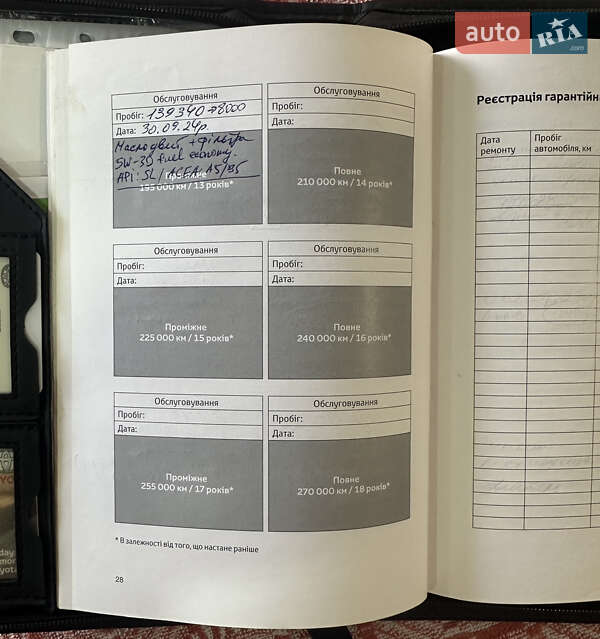 auto RIA .com
Обслуговування
Пробіг: 139340 → 8000
Дата: 30.09.24р.
Масло двиг. + фільтра
5W-30 fuel economy
API: SL / ACEA: A5/B5
Проміжне
195 000 км / 13 років*
Обслуговування
Пробіг:
Дата:
Повне
210 000 км / 14 років*
Обслуговування
Пробіг:
Дата:
Проміжне
225 000 км / 15 років*
Обслуговування
Пробіг:
Дата:
Повне
240 000 км / 16 років*
Обслуговування
Пробіг:
Дата:
Проміжне
255 000 км / 17 років*
Обслуговування
Пробіг:
Дата:
Повне
270 000 км / 18 років*
* В залежності від того, що настане раніше
28
Реєстрація гарантійн
Дата ремонту
Пробіг автомобіля, км